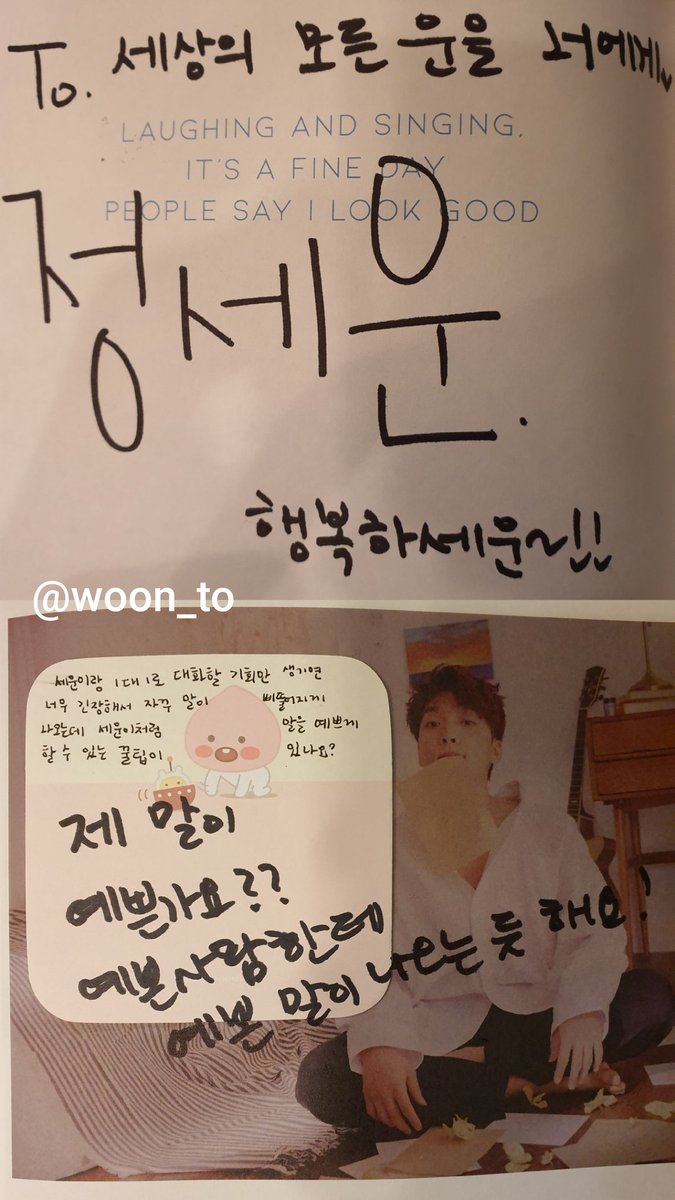 To. 세상의 모든 운을 너에게
LAUGHING AND SINGING,
IT'S A FINE DAY
PEOPLE SAY I LOOK GOOD
정세운.
행복하세운~!!
@woon_to
세운이랑 1대1로 대화할 기회만 생기면
너무 긴장해서 자꾸 말이 삐뚤어지게
나오는데 세운이처럼 말을 예쁘게
할 수 있는 꿀팁이 있나요?
제 말이
예쁜가요??
예쁜사람한테
예쁜 말이 나오는 듯 해요!